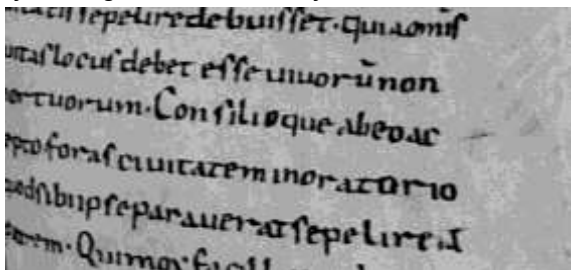 sepelire debuisset. Quia omnis
locus debet esse uiuorū non
ortuorum. Consilioque ab eo ac
epto foras ciuitatem in oratorio
quod sibi ipse parauerat sepelire
Qui mox